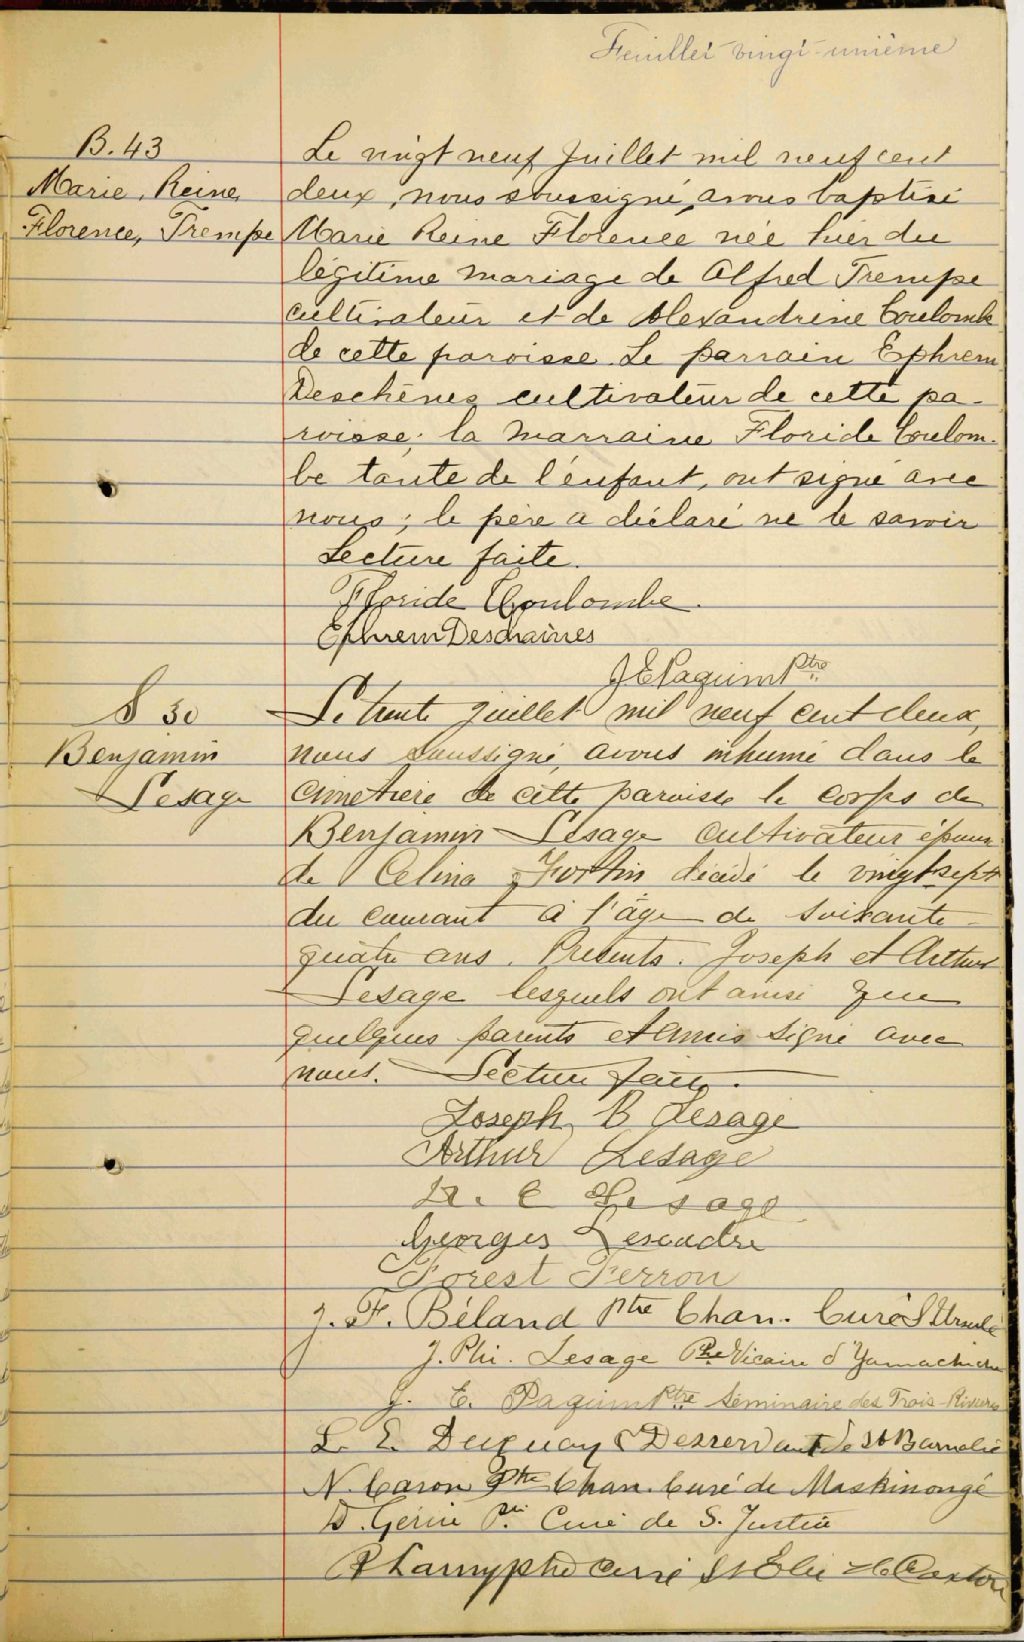 Feuillet vingt-unième
B. 43
Marie, Reine,
Florence, Trempe
Le vingt neuf Juillet mil neuf cent
deux, nous soussigné, avons baptisé
Marie Reine Florence née hier du
légitime mariage de Alfred Trempe
cultivateur et de Alexandrine Coulombe
de cette paroisse. Le parrain Ephrem
Deschênes cultivateur de cette pa-
roisse; la marraine Floride Coulom-
be tante de l'enfant, ont signé avec
nous; le père a déclaré ne le savoir
Lecture faite.
Floride Coulombe.
Ephrem Deschaines
J. E. Paquin Ptre
S 30
Benjamin
Lesage
Le trente juillet mil neuf cent deux,
nous soussigné, avons inhumé dans le
cimetière de cette paroisse le corps de
Benjamin Lesage cultivateur époux
de Celina Fortin décédé le vingt-sept
du courant à l'âge de soixante-
quatre ans. Présents. Joseph et Arthur
Lesage lesquels ont ainsi que
quelques parents et amis signé avec
nous. Lecture faite.
Joseph B Lesage
Arthur Lesage
E Lesage
Georges Lescadre
Forest Ferron
J. F. Béland Ptre Chan. Curé St Ursule
J. Phi. Lesage Ptre Vicaire d'Yamachiche
J. E. Paquin Ptre Séminaire des Trois-Rivières
L. E. Duguay Desservant de St Barnabé
N. Caron Ptre Chan. Curé de Maskinongé
D. Gérin Ptre Curé de S. Justin
Lamy ptre curé St Elie de Caxton